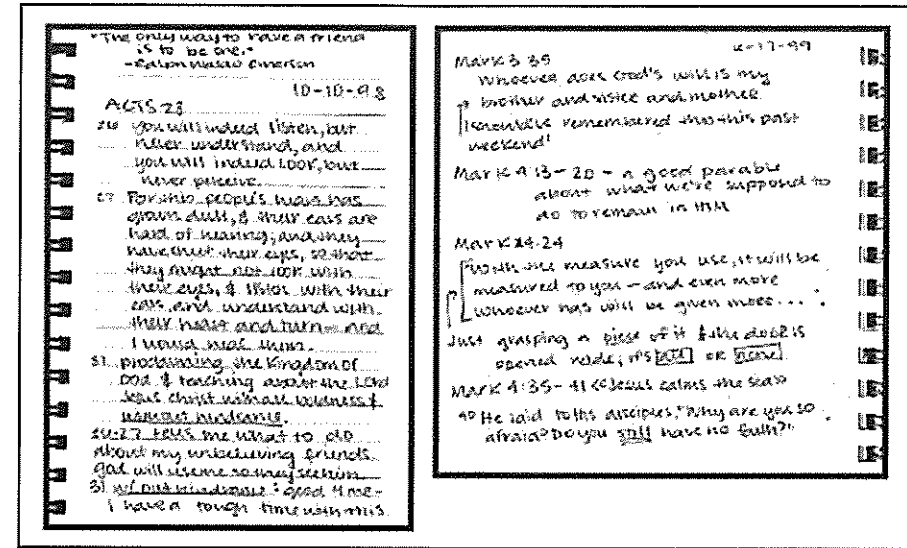 "The only way to have a friend
is to be one."
-Ralph Waldo Emerson
10-10-98
ACTS 28
26 you will indeed listen, but
never understand, and
you will indeed LOOK, but
never perceive.
27 For this people's heart has
grown dull, & their ears are
hard of hearing; and they
have shut their eyes, so that
they might not look with
their eyes, & listen with their
ears and understand with
their heart and turn - and
I would heal them.
31 proclaiming the Kingdom of
God & teaching about the Lord
Jesus Christ with all boldness &
without hindrance.
26-27 tells me what to do
about my unbelieving friends.
God will use me so they see him
31 w/ out hindrance: good time-
I have a tough time with this.
Mark 3:35
-17-99
Whoever does God's will is my
brother and sister and mother.
I should've remembered this this past
weekend!
Mark 4:13-20 - a good parable
about what we're supposed to
do to remain in HIM
Mark 4:24
"With the measure you use, it will be
measured to you - and even more
whoever has will be given more....
Just grasping a piece of it & the door is
opened wide; it's all or none.
Mark 4:35-41 Jesus calms the sea
40 He said to his disciples, "Why are you so
afraid? Do you still have no faith?"